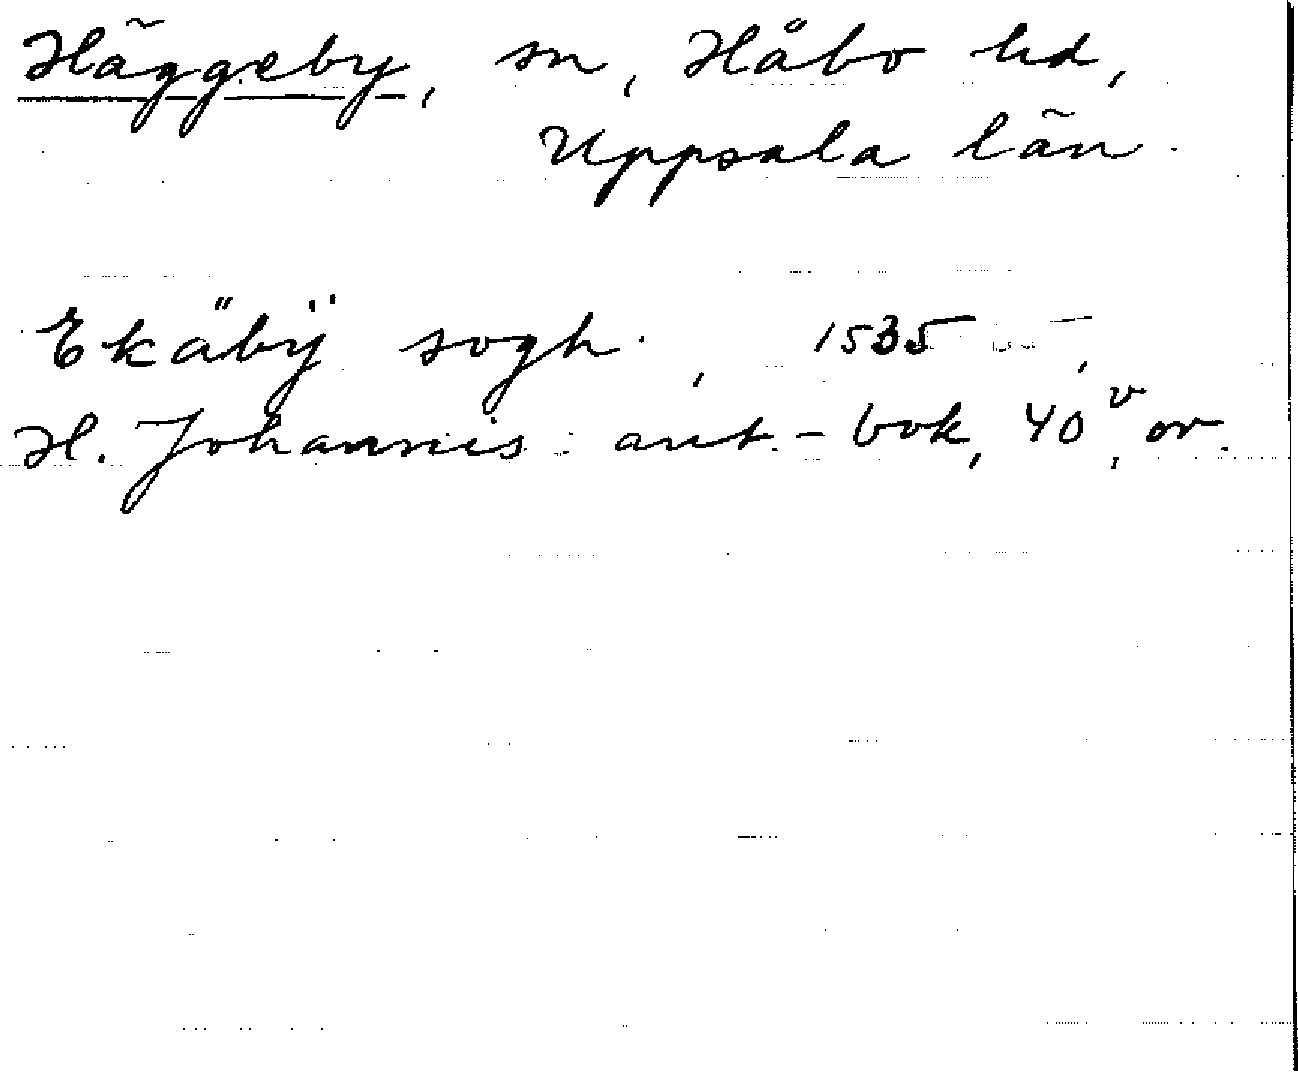 Häggeby, sn, Håbo hd,
Uppsala län.
Ekäbÿ sogh., 1535 –,
H. Johannis ant.-bok, 40v, or.